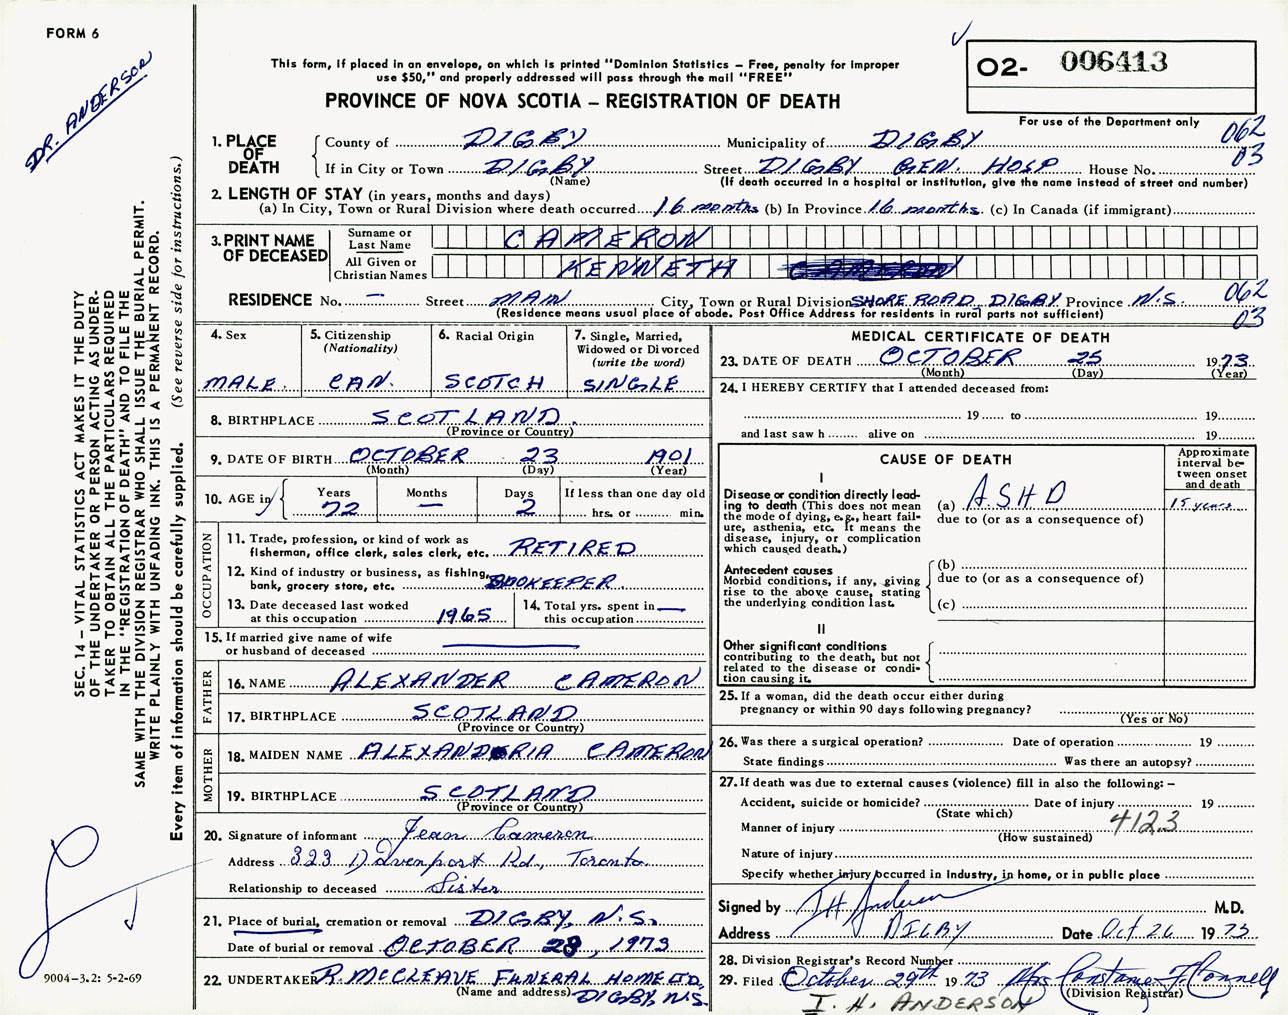 FORM 6
DR. ANDERSON
This form, if placed in an envelope, on which is printed "Dominion Statistics – Free, penalty for improper
use $50," and properly addressed will pass through the mail "FREE"
PROVINCE OF NOVA SCOTIA – REGISTRATION OF DEATH
02- 006413
For use of the Department only
062
03
1. PLACE OF DEATH
County of DIGBY Municipality of DIGBY
If in City or Town DIGBY Street DIGBY GEN. HOSP House No.
(Name) (If death occurred in a hospital or institution, give the name instead of street and number)
2. LENGTH OF STAY (in years, months and days)
(a) In City, Town or Rural Division where death occurred 16 months (b) In Province 16 months. (c) In Canada (if immigrant)
3. PRINT NAME OF DECEASED
Surname or Last Name CAMERON
All Given or Christian Names KENNETH
RESIDENCE No. — Street MAIN City, Town or Rural Division SHORE ROAD DIGBY Province N.S. 062
(Residence means usual place of abode. Post Office Address for residents in rural parts not sufficient) 03
4. Sex
MALE.
5. Citizenship
(Nationality)
CAN.
6. Racial Origin
SCOTCH
7. Single, Married,
Widowed or Divorced
(write the word)
SINGLE
8. BIRTHPLACE SCOTLAND.
(Province or Country)
9. DATE OF BIRTH OCTOBER 23 1901
(Month) (Day) (Year)
10. AGE in
Years 72
Months —
Days 2
If less than one day old
hrs. or min.
OCCUPATION
11. Trade, profession, or kind of work as
fisherman, office clerk, sales clerk, etc. RETIRED
12. Kind of industry or business, as fishing,
bank, grocery store, etc. BOOKEEPER.
13. Date deceased last worked
at this occupation 1965
14. Total yrs. spent in —
this occupation
15. If married give name of wife
or husband of deceased
FATHER
16. NAME ALEXANDER CAMERON
17. BIRTHPLACE SCOTLAND
(Province or Country)
MOTHER
18. MAIDEN NAME ALEXANDRIA CAMERON
19. BIRTHPLACE SCOTLAND
(Province or Country)
20. Signature of informant Jean Cameron
Address 323 Davenport Rd., Toronto
Relationship to deceased Sister
21. Place of burial, cremation or removal DIGBY, N.S.
Date of burial or removal OCTOBER 28, 1973
22. UNDERTAKER R. McCLEAVE FUNERAL HOME LTD.
(Name and address) DIGBY, N.S.
MEDICAL CERTIFICATE OF DEATH
23. DATE OF DEATH OCTOBER 25 1973
(Month) (Day) (Year)
24. I HEREBY CERTIFY that I attended deceased from:
19 to 19
and last saw h alive on 19
CAUSE OF DEATH
Approximate
interval be-
tween onset
and death
I
Disease or condition directly lead-
ing to death (This does not mean
the mode of dying, e.g., heart fail-
ure, asthenia, etc. It means the
disease, injury, or complication
which caused death.)
(a) ASHD 15 years
due to (or as a consequence of)
Antecedent causes
Morbid conditions, if any, giving
rise to the above cause, stating
the underlying condition last.
(b)
due to (or as a consequence of)
(c)
II
Other significant conditions
contributing to the death, but not
related to the disease or condi-
tion causing it.
25. If a woman, did the death occur either during
pregnancy or within 90 days following pregnancy?
(Yes or No)
26. Was there a surgical operation? Date of operation 19
State findings Was there an autopsy?
27. If death was due to external causes (violence) fill in also the following: –
Accident, suicide or homicide? Date of injury 19
(State which)
Manner of injury 4123
(How sustained)
Nature of injury
Specify whether injury occurred in industry, in home, or in public place
Signed by I H Anderson M.D.
Address DIGBY Date Oct 26 1973
28. Division Registrar's Record Number
29. Filed October 29th 1973 Mrs Constance F. Connell
(Division Registrar)
I. H. ANDERSON
SEC. 14 – VITAL STATISTICS ACT MAKES IT THE DUTY
OF THE UNDERTAKER OR PERSON ACTING AS UNDER-
TAKER TO OBTAIN ALL THE PARTICULARS REQUIRED
IN THE "REGISTRATION OF DEATH" AND TO FILE THE
SAME WITH THE DIVISION REGISTRAR WHO SHALL ISSUE THE BURIAL PERMIT.
WRITE PLAINLY WITH UNFADING INK. THIS IS A PERMANENT RECORD.
Every item of information should be carefully supplied. (See reverse side for instructions.)
9004-3.2: 5-2-69